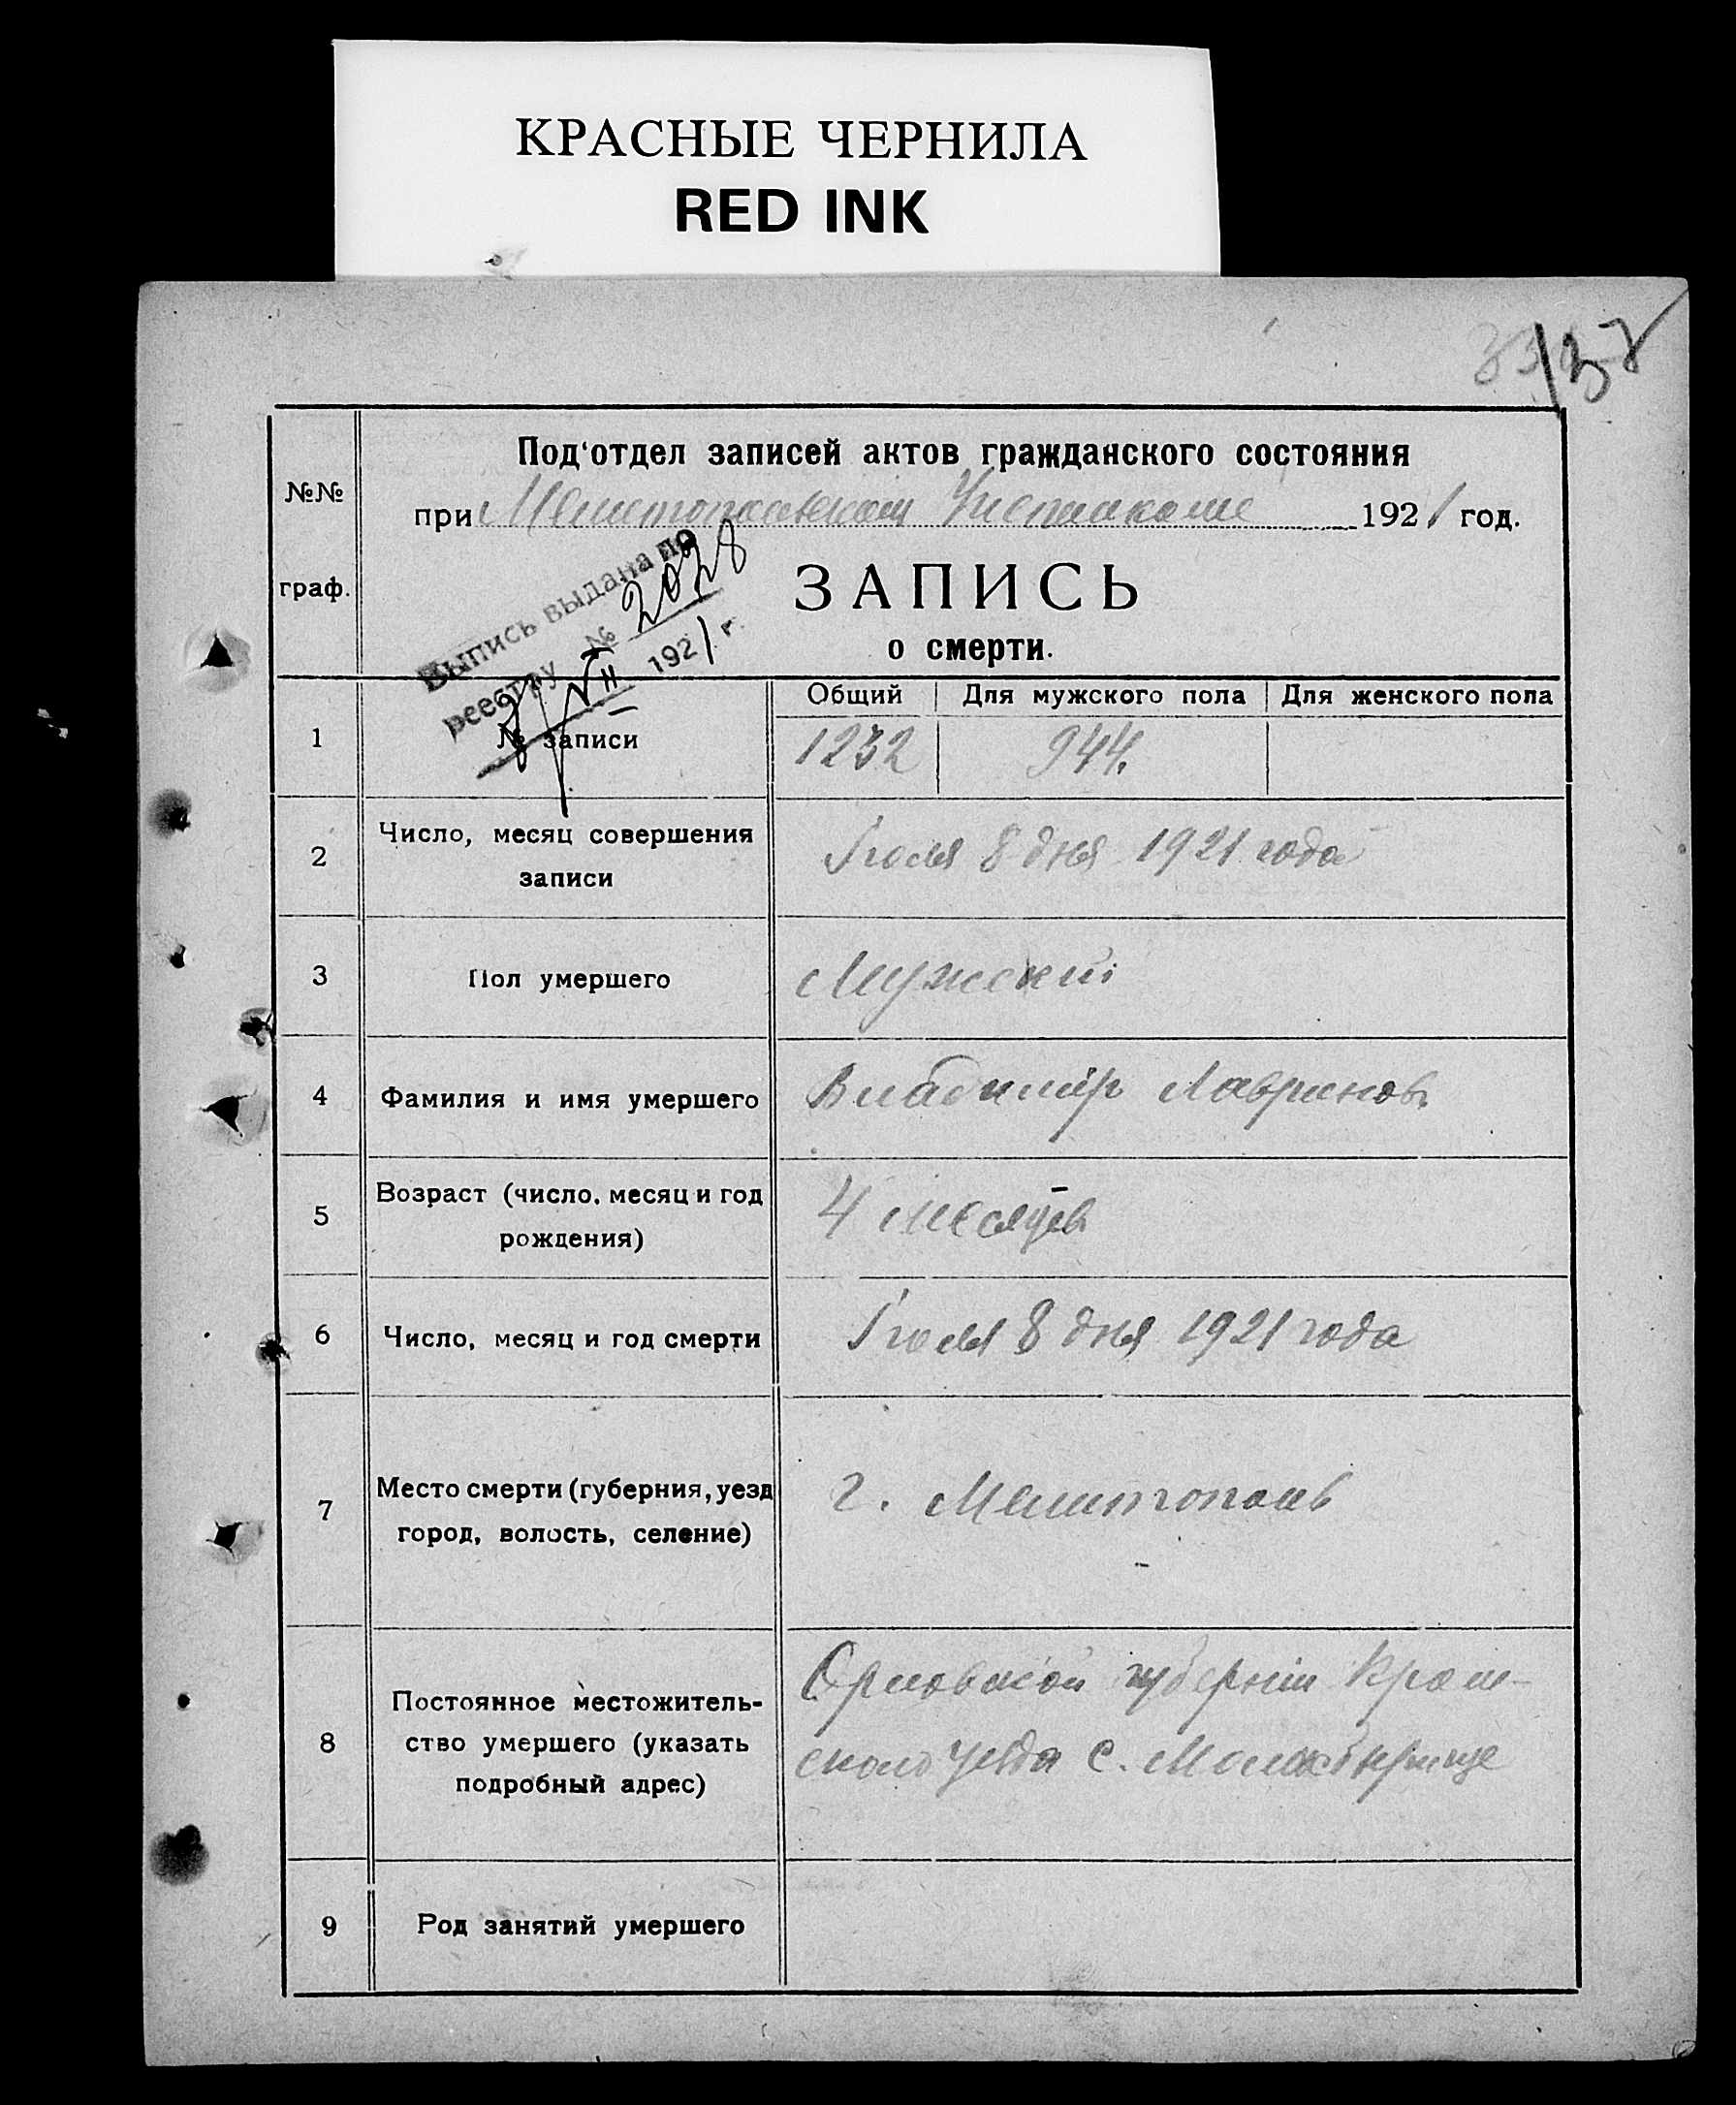 КРАСНЫЕ ЧЕРНИЛА
RED INK
Под'отдел записей актов гражданского состояния
№№
при Мелитопольском 1921 год.
граф.
Выпись выдана по
реестру № 2028
1921 г.
ЗАПИСЬ
о смерти.
Общий Для мужского пола Для женского пола
1 № записи 1232 944.
2 Число, месяц совершения
записи
Iюля 8 дня 1921 года
3 Пол умершего Мужский
4 Фамилия и имя умершего Владимiр Лавринов
5 Возраст (число, месяц и год
рождения)
4 месяцев
6 Число, месяц и год смерти Iюля 8 дня 1921 года
7 Место смерти (губерния, уезд
город, волость, селение)
г. Мелитополь
8 Постоянное местожитель-
ство умершего (указать
подробный адрес)
Орловской губернiи Кром-
ского с.
9 Род занятий умершего